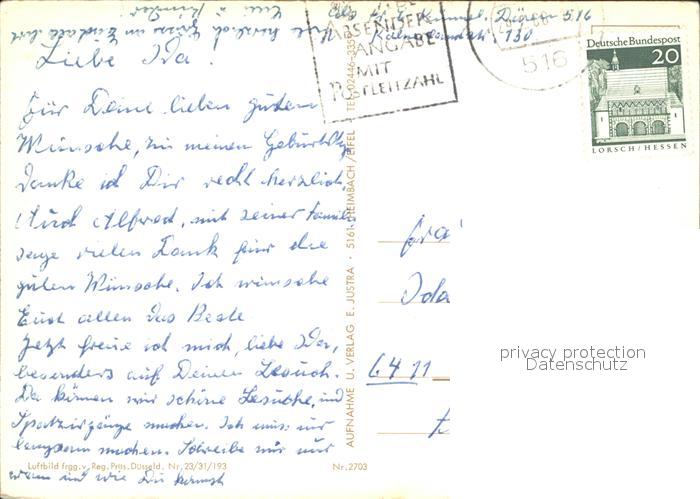 Liebe Ida.
Für Deine lieben guten
Wünsche, zu meinen Geburtstg
danke ich Dir recht herzlich
Auch Alfred, mit seiner Famili
sage vielen Dank für die
guten Wünsche. Ich wünsche
Euch allen das Beste.
Jetzt freue ich mich, liebe Ida,
besonders auf Deinen Besuch.
Da können wir schöne Besuche, und
Spatziergänge machen. Ich muss nur
langsam machen. Schreibe mir nur
wann und wie Du kommst
Luftbild frgg. v. Reg. Präs. Düsseld. Nr. 23/31/193
Nr. 2703
AUFNAHME U. VERLAG E. JUSTRA · 5161 HEIMBACH/EIFEL
ABSENDER
ANGABE
MIT
POSTLEITZAHL
516
Düren 516
130
Deutsche Bundespost
20
LORSCH/HESSEN
Ida
6411
privacy protection
Datenschutz